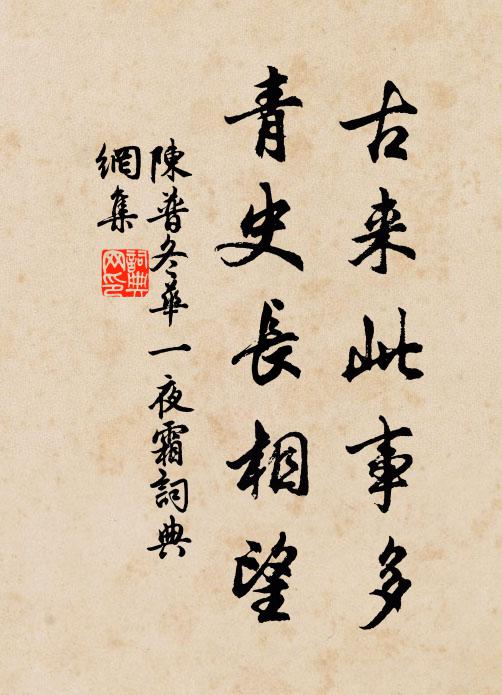 古来此事多
青史長相望
陳普冬華一夜霜詞典
網集
詞典
网印